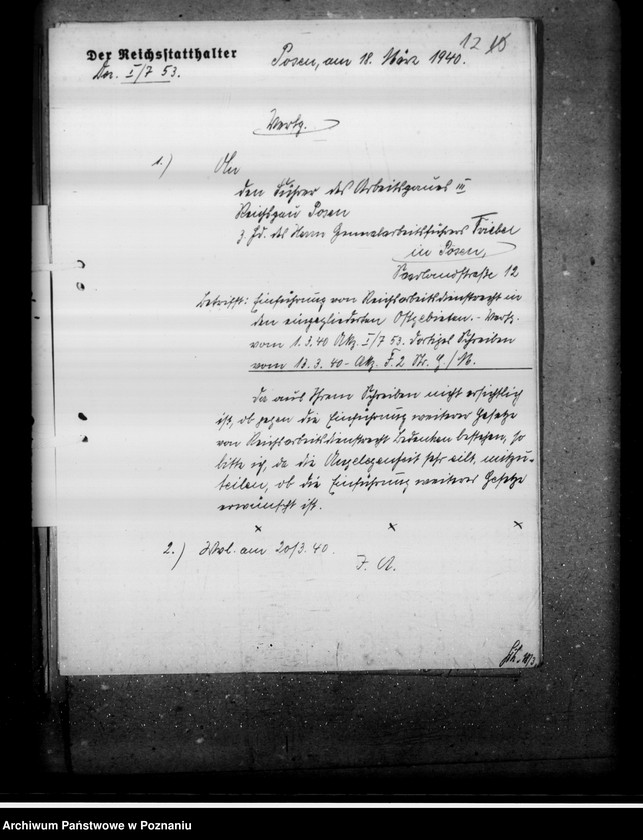 12
Der Reichsstatthalter
Posen, am 18. März 1940.
I/7 53.
Verfg.
1.) An
den Führer des Arbeitsgaues III
Reichsgau Posen
z. Hd. des Herrn Generalarbeitsführers Triebel
in Posen,
Saarlandstraße 12
Betrifft: Einführung von Reichsarbeitsdienstrecht in
den eingegliederten Ostgebieten. - Verfg.
vom 1.3.40 Akz. I/7 53. Dortiges Schreiben
vom 13.3.40 - Akz. F. 2 Nr.
Da aus Ihrem Schreiben nicht ersichtlich
ist, ob gegen die Einführung weiterer Gesetze
von Reichsarbeitsdienstrecht Bedenken bestehen, so
bitte ich, da die Angelegenheit sehr eilt, mitzu-
teilen, ob die Einführung weiterer Gesetze
erwünscht ist.
x x x
2.) Wvl. am 20/3.40.
J. A.
Archiwum Państwowe w Poznaniu